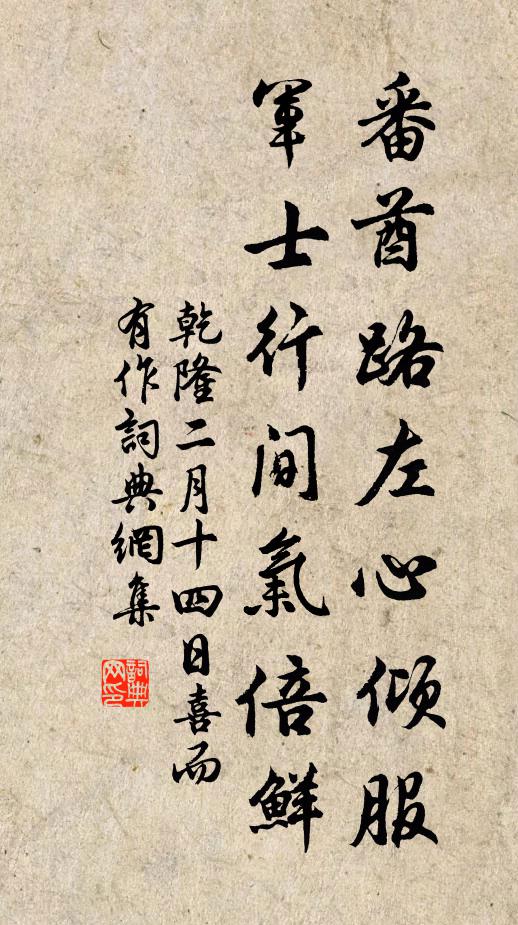 番酋路左心傾服
軍士行間氣倍鮮
乾隆二月十四日喜而
有作詞典網集
詞典网印